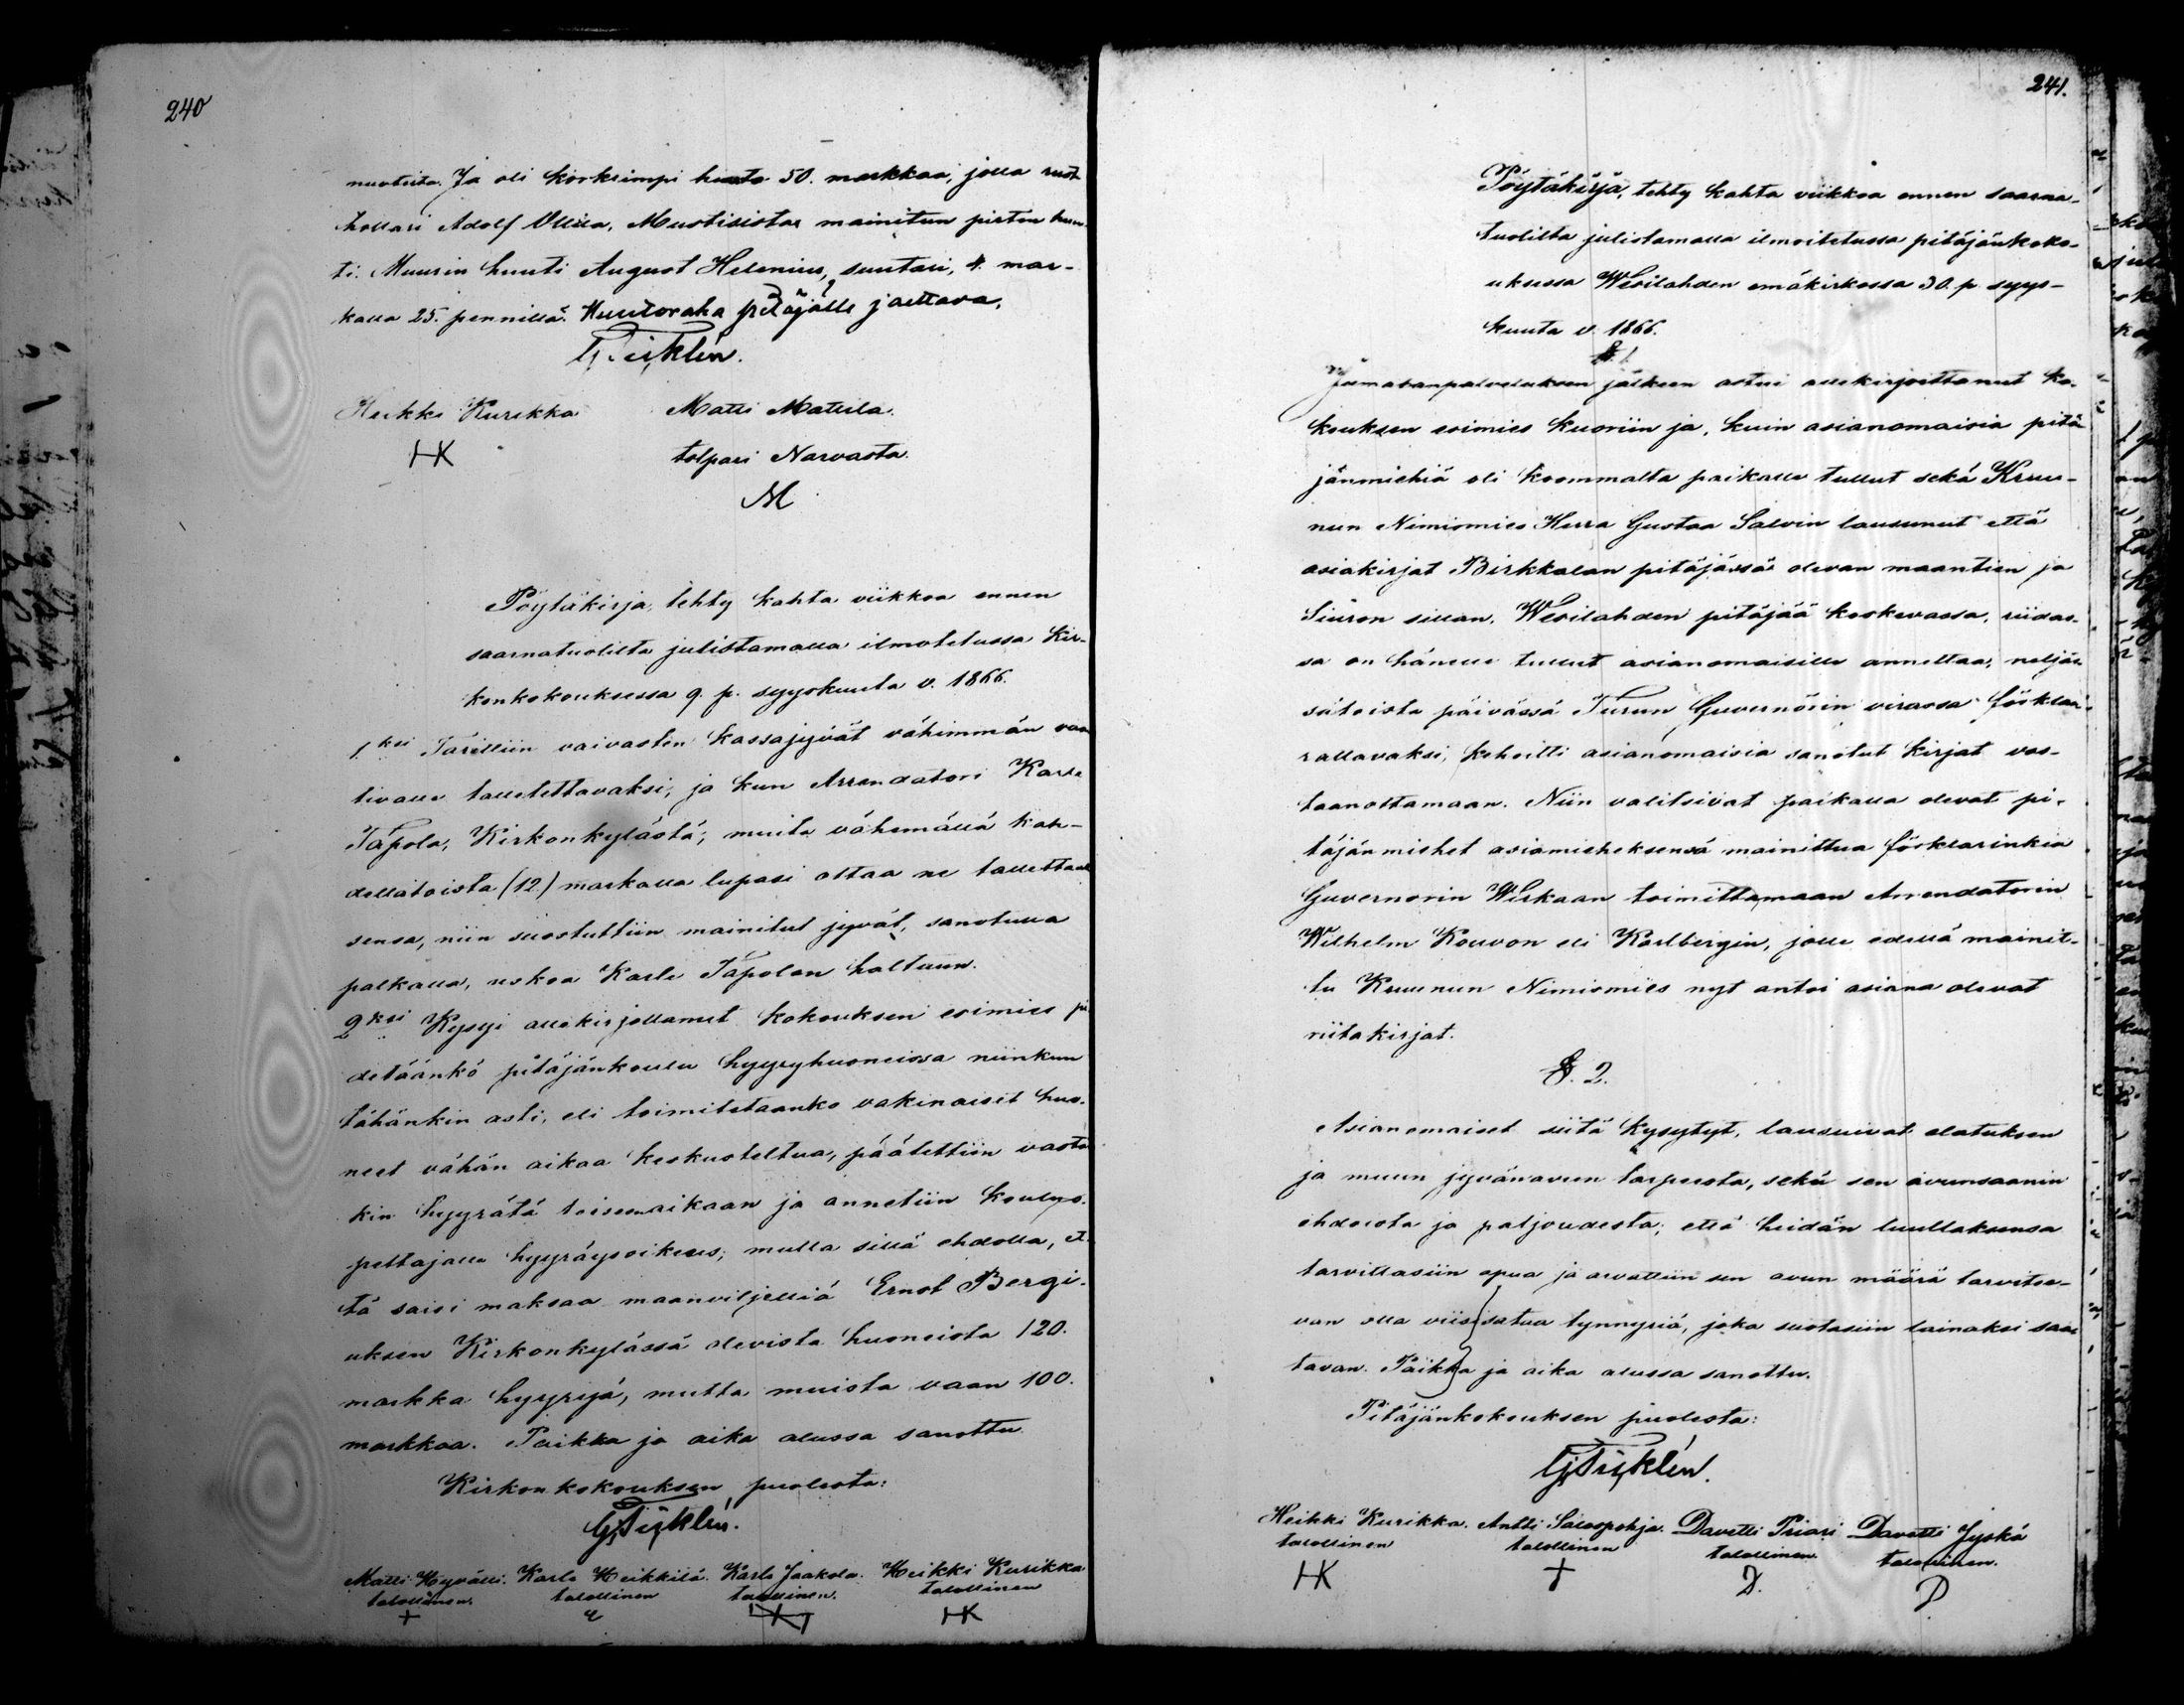 240
Ja oli korkeimpi huuto 50. markkaa, jolla rust-
hollari Adolf Ollila, mainitun pirtin huu-
ti. Muurin huuti August Helenius, suutari, 4. mar-
kalla 25. pennillä. Huutoraha pitäjälle jaettava.
G. Fr. Ticklén.
Heikki Kurikka Matti Mattila.
HK torpari Narvasta.
M
Pöytäkirja, tehty kahta viikkoa ennen
saarnatuolilta julistamalla ilmotetussa kir-
konkokouksessa 9. p. syyskuuta v. 1866.
1ksi Tarittiin vaivasten kassajyvät vähimmän vaa
tivalle talletettavaksi; ja kun Arrendatori Karle
Tapola, Kirkonkylästä; muita vähemällä kah-
dellatoista (12) markalla lupasi ottaa ne tallettaak
sensa, niin suostuttiin mainitut jyvät, sanotulla
palkalla, uskoa Karle Tapolan haltuun.
2ksi Kysyi allekirjottanut kokouksen esimies pi
detäänkö pitäjänkoulu hyyryhuoneissa niinkuu
tähänkin asti, eli toimitetaanko vakinaiset huo-
neet vähän aikaa keskusteltua, päätettiin vasta
kin hyyrätä toiseenaikaan ja annetiin koulun-
pettajalle hyyräysoikeus; mutta sillä ehdolla, et-
tä saisi maksaa maanviljelliä Ernst Bergi-
uksen Kirkonkylässä olevista huoneista 120.
markka hyyryjä, mutta muista vaan 100.
markkaa. Paikka ja aika alussa sanottu.
Kirkonkokouksen puolesta:
G. Fr. Ticklén.
Matti Hyvälli. Karle Heikkilä. Karle Jaakola. Heikki Kurikka
talollinen. talollinen talollinen. talollinen
+ HK
241.
Pöytäkirja, tehty kahta viikkoa ennen saarna-
tuolilta julistamalla ilmoitetussa pitäjänkoko-
uksessa Wesilahden emäkirkossa 30. p. syys-
kuuta v. 1866.
§. 1.
Jumalanpalveluksen jälkeen astui allekirjoittanut ko-
kouksen esimies kuoriin ja, kuin asianomaisia pitä
jänmiehiä oli koommalta paikalle tullut sekä Kruu-
nun Nimismies Herra Gustaa Salvin lausunut että
asiakirjat Birkkalan pitäjässä olevan maantien ja
Siuron sillan, Wesilahden pitäjää koskevassa, riidas-
sa on hänelle tullut asianomaisille annettaa, neljäs-
sätoista päivässä Turun Guvernörin virassa förklaa-
rattavaksi, kehoitti asianomaisia sanotut kirjat vas-
taanottamaan. Niin valitsivat paikalla olevat pi-
täjänmiehet asiamieheksensä mainittua förklarinkia
Guvernorin Wirkaan toimittamaan Arrendatorin
Wilhelm Kouvon eli Karlbergin, jolle edellä mainit-
tu Kruunun Nimismies nyt antoi asiana olevat
riitakirjat.
§. 2.
Asianomaiset siitä kysytyt, lausuivat elatuksen
ja muun jyvänavun tarpeesta, sekä sen avunsaanin
ehdoista ja paljoudesta; että heidän luullaksensa
tarvittasiin apua ja arvattiin sen avun määrä tarvitse-
van olla viisisataa tynnyriä, joka suotasiin lainaksi saa-
tavan. Paikka ja aika alussa sanottu.
Pitäjänkokouksen puolesta:
G. Fr. Ticklén.
Heikki Kurikka. Antti Salospohja. Davetti Priari Davetti Jyskä
talollinen talollinen talollinen. talollinen.
HK + D. D